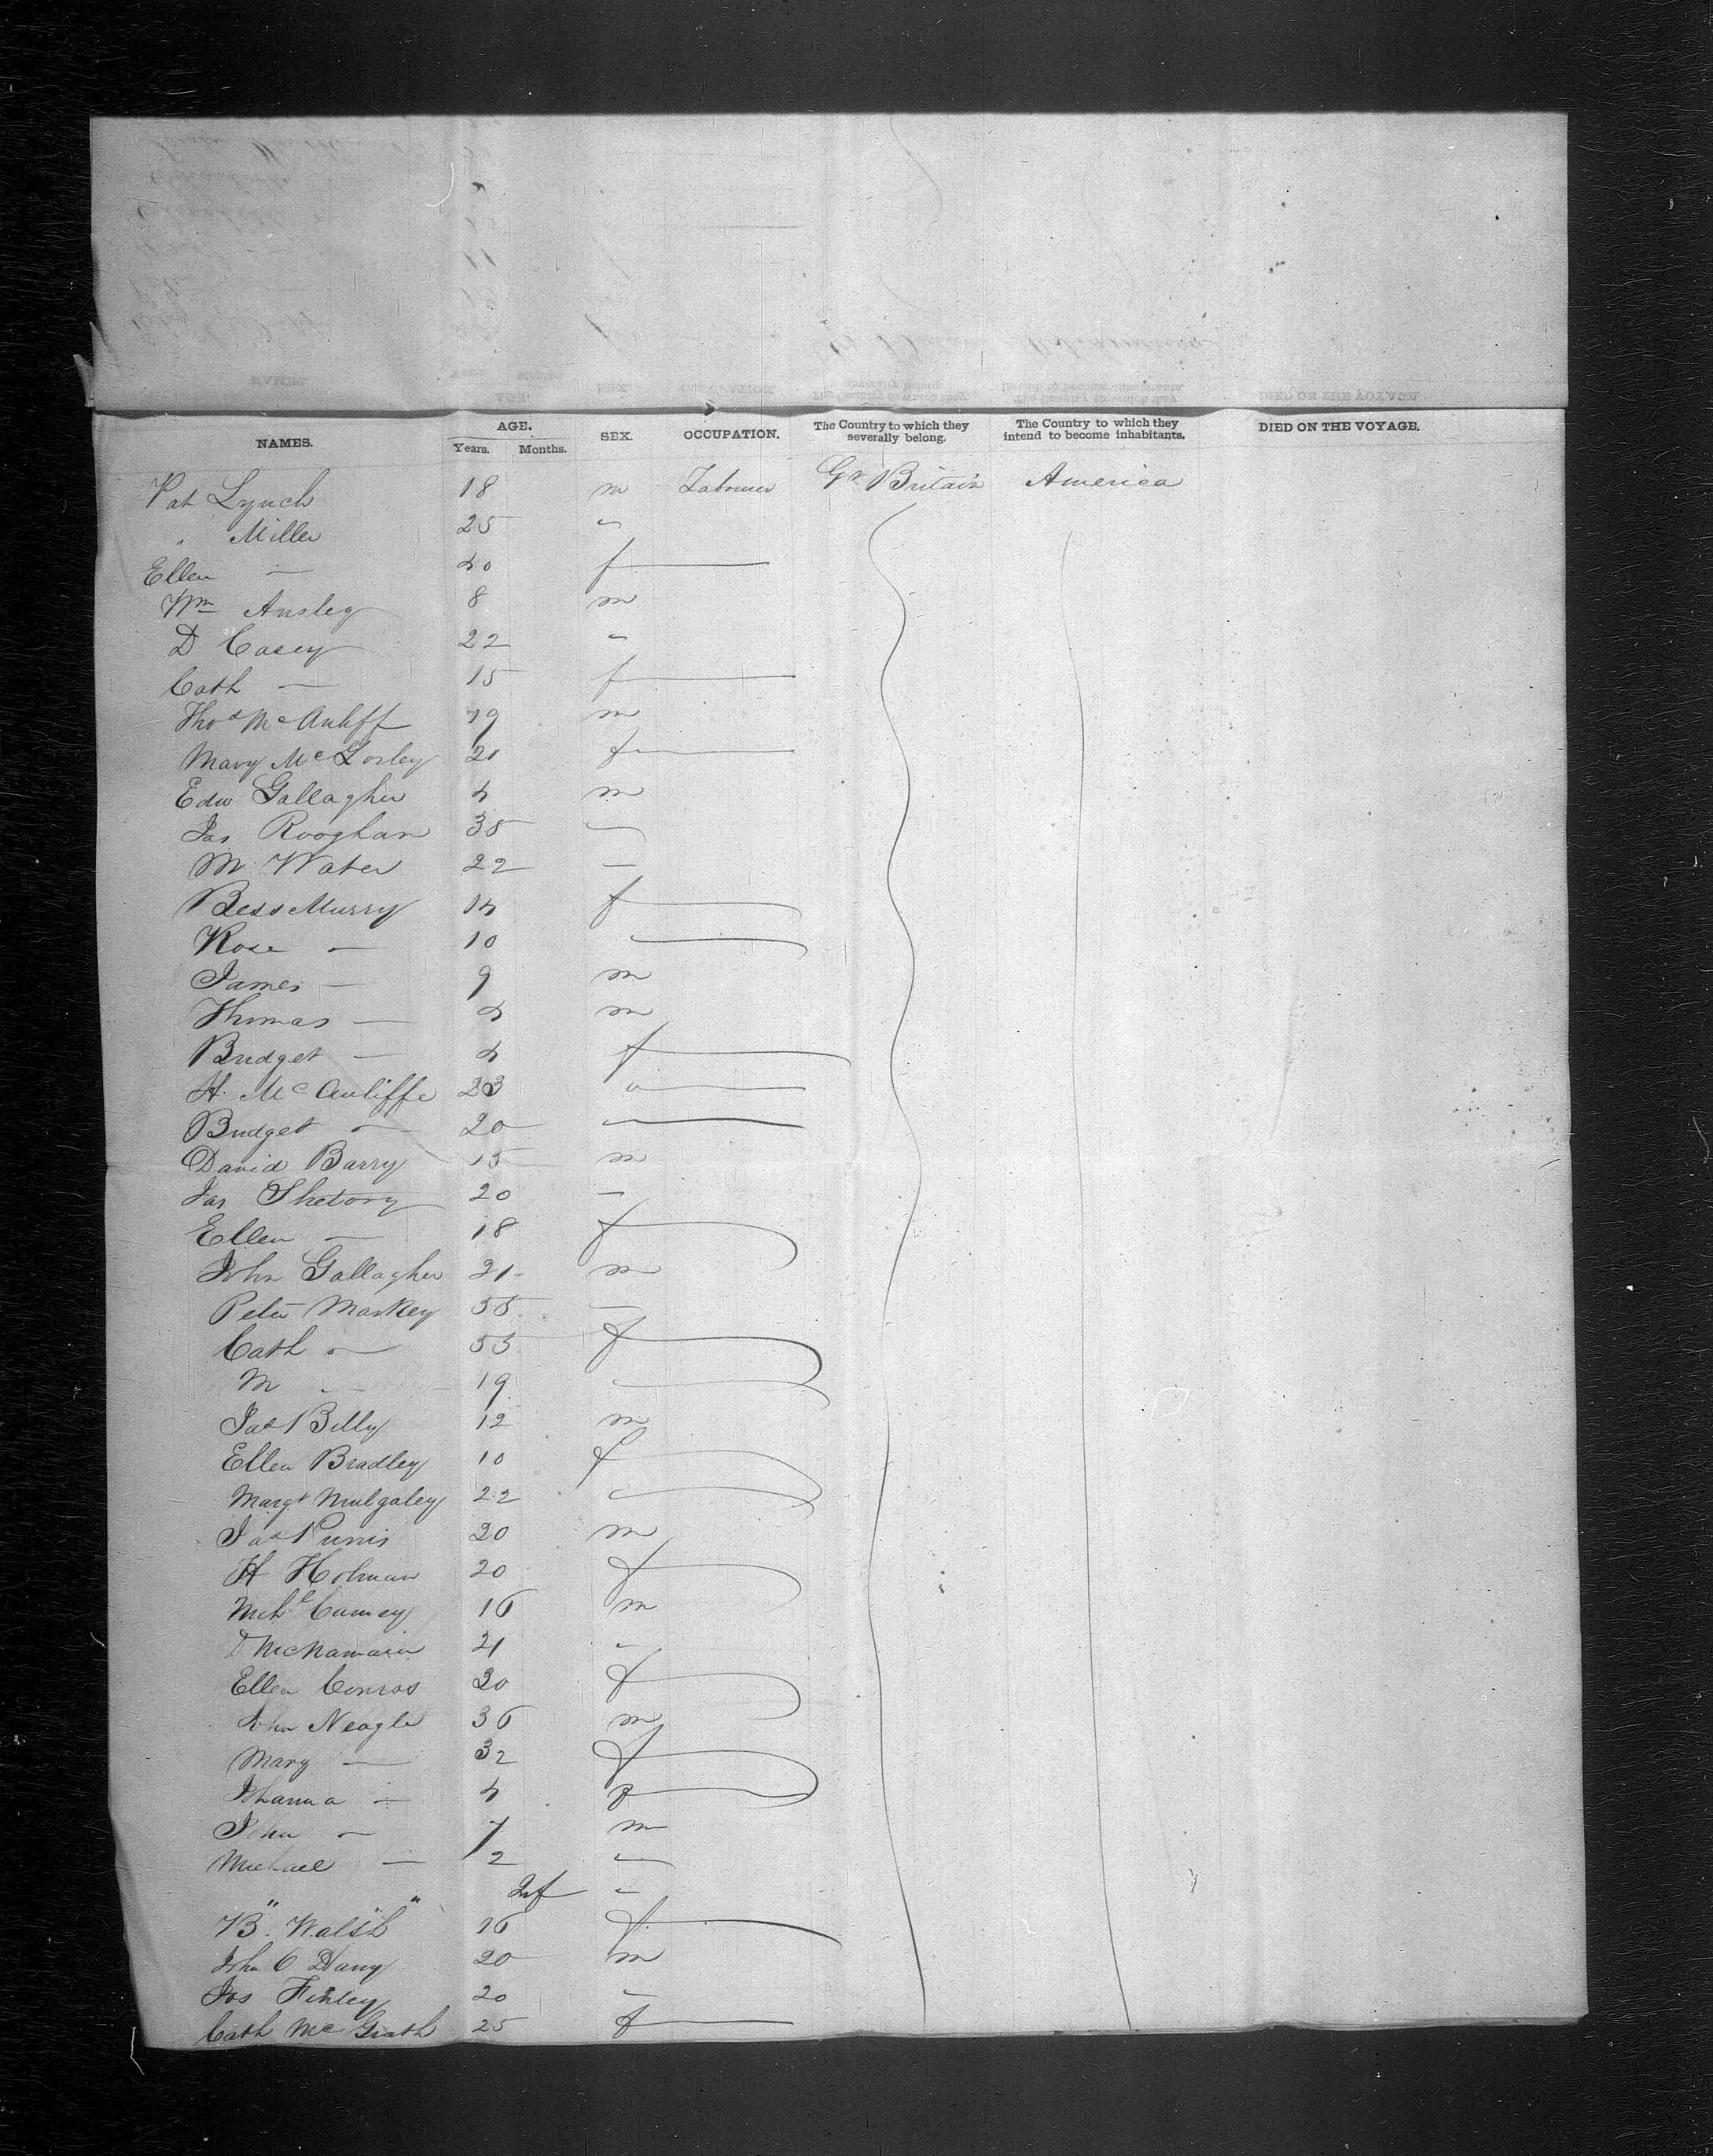 NAMES. AGE. Years. Months. SEX. OCCUPATION. The Country to which they severally belong. The Country to which they intend to become inhabitants. DIED ON THE VOYAGE.
Pat Lynch 18 m Labourer Gt Britain America
" Miller 25 "
Ellen — 40 f
Wm Ansley 8 m
D Casey 22 "
Cath — 15 f
Thos McAuliff 19 m
Mary McGorley 21 f
Edw Gallagher 4 m
Jas Rooghan 35 "
M Water 22 —
Bess Murry 14 f
Rose — 10 "
James — 9 m
Thomas — 4 m
Bridget — 4 f
H. McAuliffe 23 "
Bridget — 20 "
David Barry 15 m
Jas Shetory 20 —
Ellen — 18 f
John Gallagher 21 m
Peter Markey 55 —
Cath — 55 f
M — 19 "
Jas Billy 12 m
Ellen Bradley 10 f
Margt Mulgaley 22 "
Jas 20 m
H Holman 20 f
Michl 16 m
McNamara 21 "
Ellen Conros 20 f
John Neagle 36 m
Mary — 32 f
Johanna — 4 f
John — 7 m
Michael — 2 "
" " Inf "
B. Walsh 16 f
John O 20 m
Jos Finley 20 "
Cath McGrath 25 f